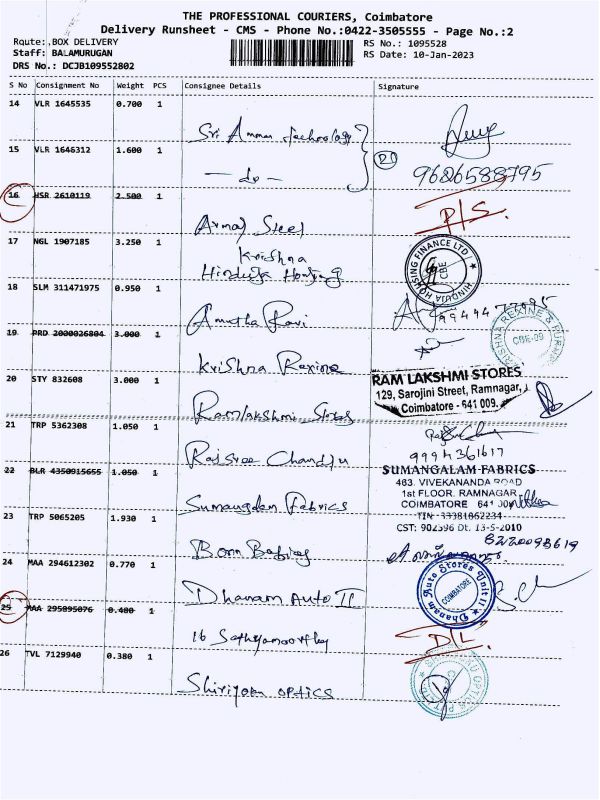 THE PROFESSIONAL COURIERS, Coimbatore
Delivery Runsheet - CMS - Phone No.:0422-3505555 - Page No.:2
Route: BOX DELIVERY
Staff: BALAMURUGAN
DRS No.: DCJB109552802
RS No.: 1095528
RS Date: 10-Jan-2023
S No Consignment No Weight PCS Consignee Details Signature
14 VLR 1645535 0.700 1
Sri Amman Technology
15 VLR 1646312 1.600 1
- do -
9626588795
16 HSR 2610119 2.500 1
D/S.
Steel
17 NGL 1907185 3.250 1
Krishna
Hinduja Housing
HINDUJA HOUSING FINANCE LTD
CBE
18 SLM 311471975 0.950 1
Amutha Ravi
19 PRD 2000026804 3.000 1
Krishna Rexine
KRISHNA REXINE &
CBE-09
20 STY 832608 3.000 1
Ramlakshmi Stores
RAM LAKSHMI STORES
129, Sarojini Street, Ramnagar,
Coimbatore - 641 009.
21 TRP 5362308 1.050 1
Rajsree Chandju
9994361617
22 BLR 4350915655 1.050 1
Sumangalam Fabrics
SUMANGALAM FABRICS
463. VIVEKANANDA ROAD
1st FLOOR. RAMNAGAR
COIMBATORE
TIN 33381862234
CST: 902596 Dt. 13-5-2010
23 TRP 5065205 1.930 1
24 MAA 294612302 0.770 1
Dhanam Auto II
Dhanam Auto Stores Unit II
COIMBATORE
25 MAA 295895076 0.480 1
16 Sathyamoorthy
D/L
26 TVL 7129940 0.380 1
optics